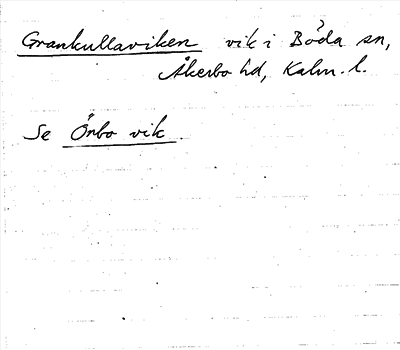 Grankullaviken vik i Böda sn,
Åkerbo hd, Kalm. l.
Se Örbo vik.